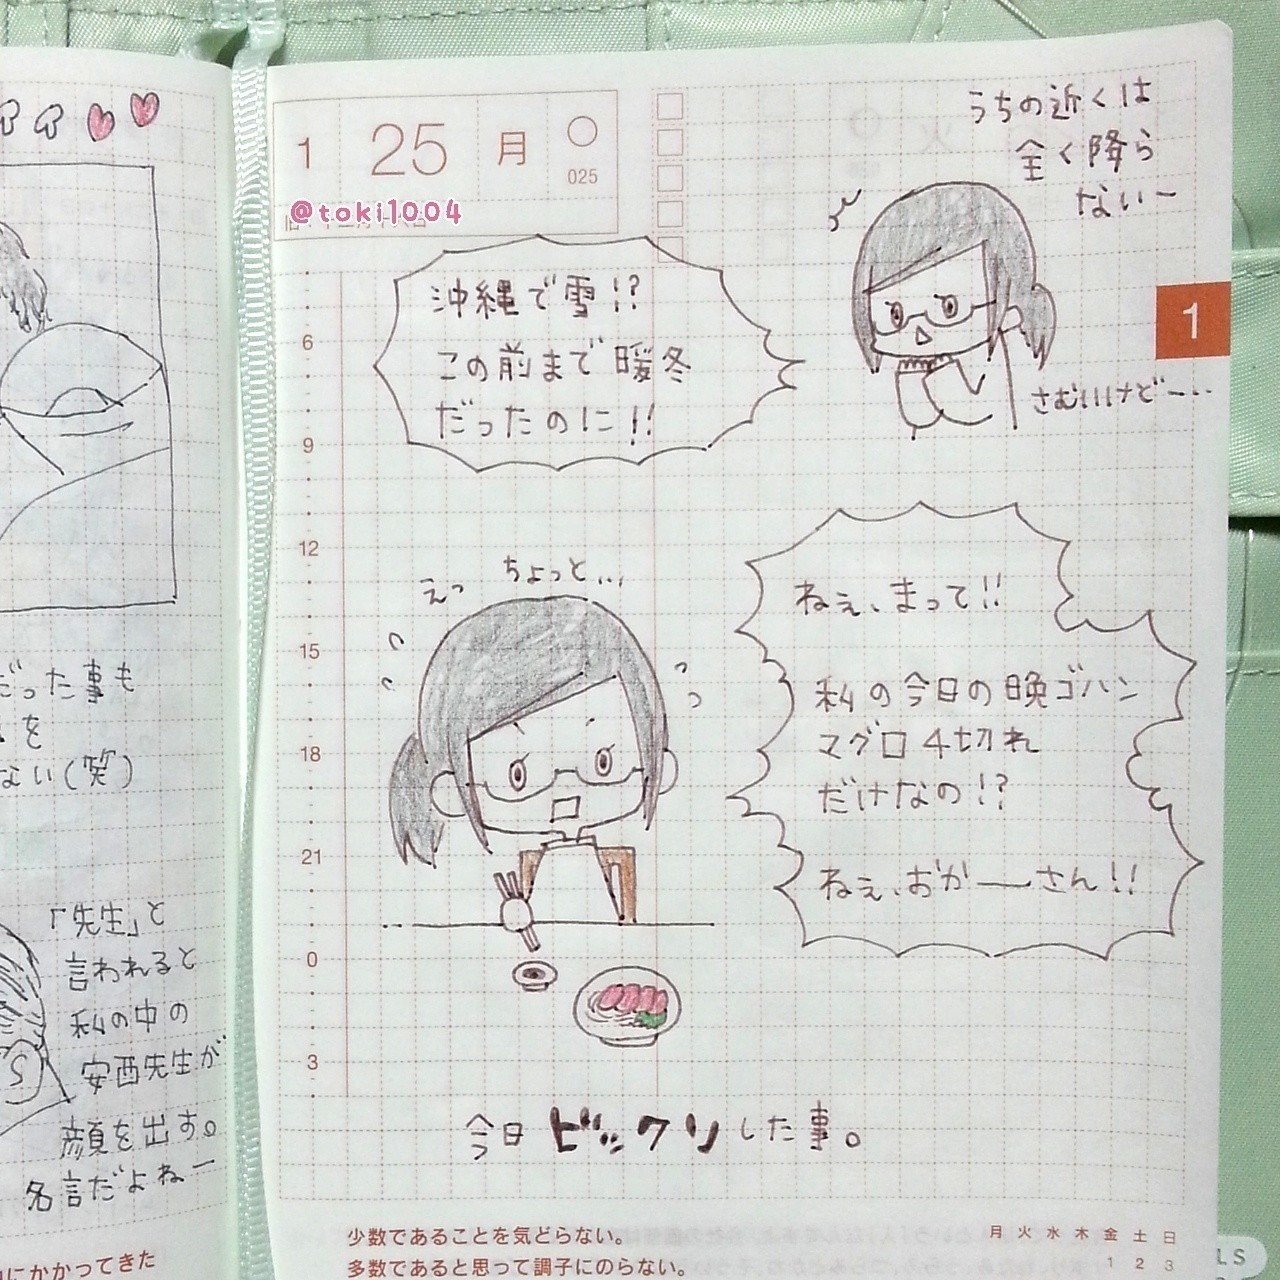 だった事も
を
ない(笑)
「先生」と
言われると
私の中の
安西先生が
顔を出す。
名言だよねー
にかかってきた
1 25 月
025
@toki1004
うちの近くは
全く降ら
ないー
沖縄で雪!?
この前まで暖冬
だったのに!!
さむいけどー…
1
6
9
12
15
18
21
0
3
えっ ちょっと…
ねぇ、まって!!
私の今日の晩ゴハン
マグロ4切れ
だけなの!?
ねぇ、おかーさん!!
今日ビックリした事。
少数であることを気どらない。
多数であると思って調子にのらない。
月 火 水 木 金 土 日
1 2 3
LS